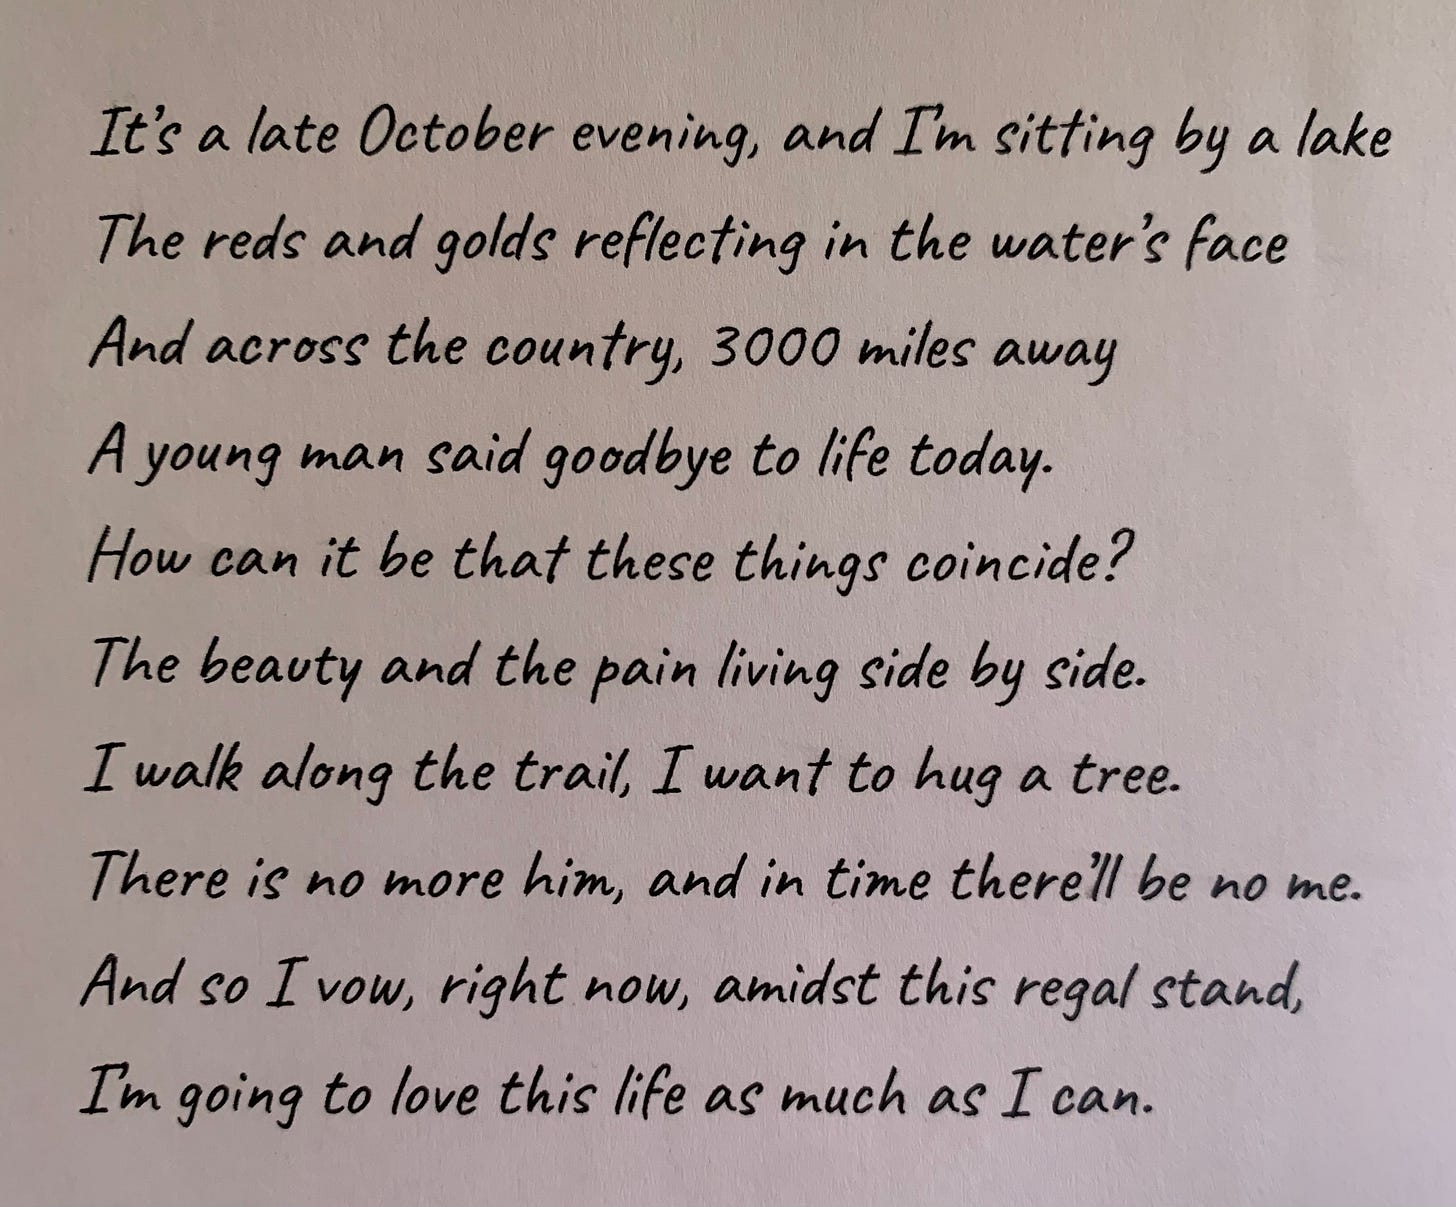 It's a late October evening, and I'm sitting by a lake
The reds and golds reflecting in the water's face
And across the country, 3000 miles away
A young man said goodbye to life today.
How can it be that these things coincide?
The beauty and the pain living side by side.
I walk along the trail, I want to hug a tree.
There is no more him, and in time there'll be no me.
And so I vow, right now, amidst this regal stand,
I'm going to love this life as much as I can.